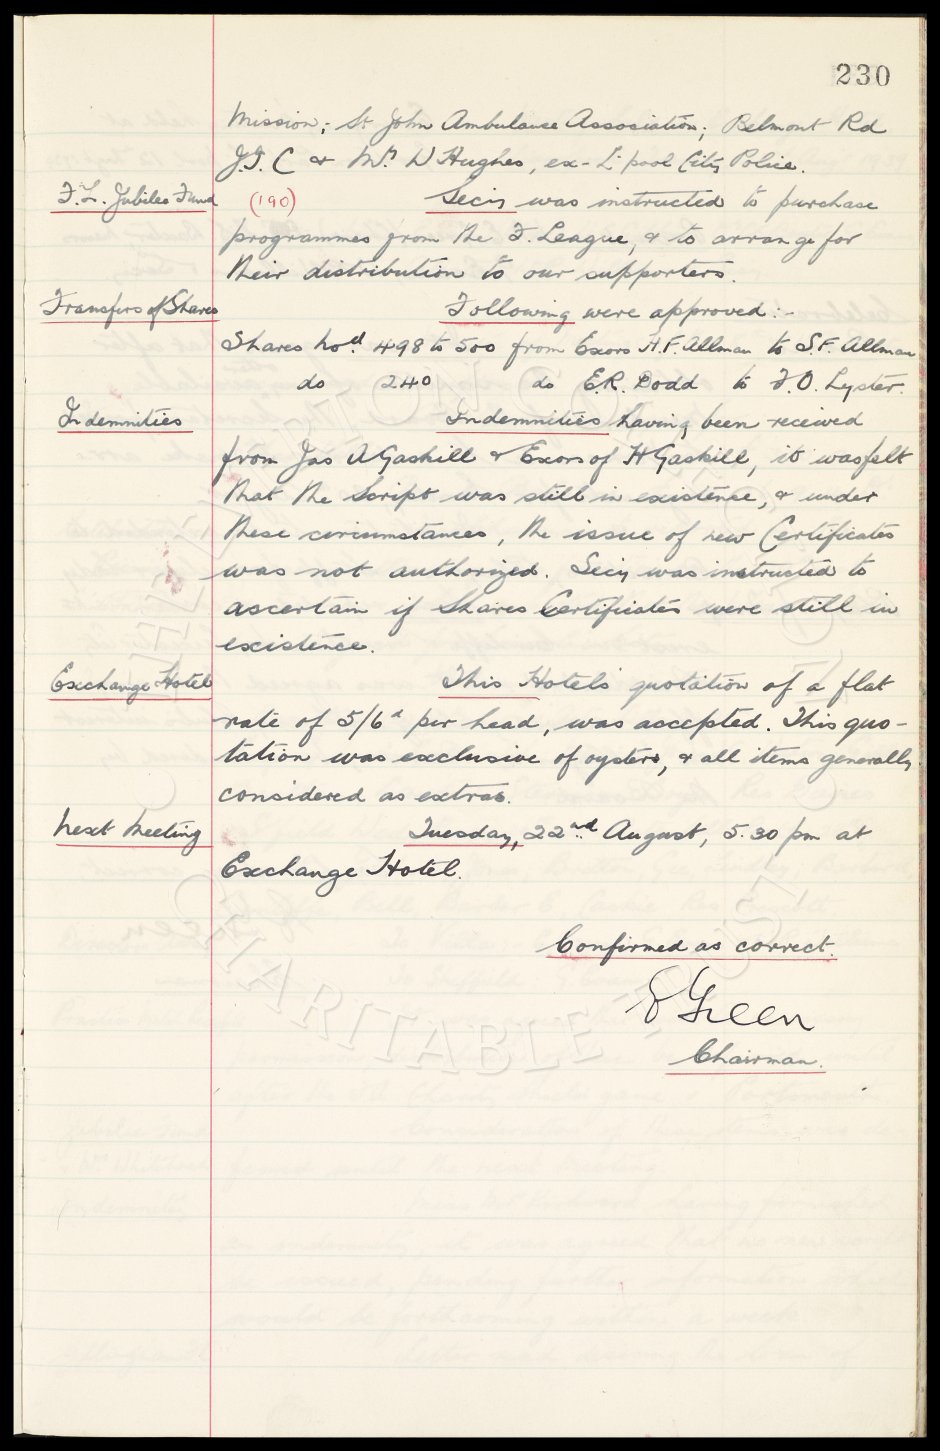 230
Mission; St John Ambulance Association; Belmont Rd
J.I.C & Mr. W Hughes, ex-L'pool City Police.
F.L. Jubilee Fund (190) Secy was instructed to purchase
programmes from the F. League, & to arrange for
their distribution to our supporters.
Transfers of Shares Following were approved:-
Shares Nod. 498 to 500 from Exors H.F. Allman to S.F. Allman
do 240 do E.R. Dodd to F.O. Lyster.
Indemnities Indemnities having been received
from Jas A Gaskill & Exors of H Gaskill, it was felt
that the Script was still in existence, & under
these circumstances, the issue of new Certificates
was not authorized. Secy was instructed to
ascertain if Shares Certificates were still in
existence.
Exchange Hotel This Hotels quotation of a flat
rate of 5/6d per head, was accepted. This quo-
tation was exclusive of oysters, & all items generally
considered as extras.
Next Meeting Tuesday, 22nd August, 5.30 pm at
Exchange Hotel.
Confirmed as correct.
E Green
Chairman.
CHARITABLE TRUST